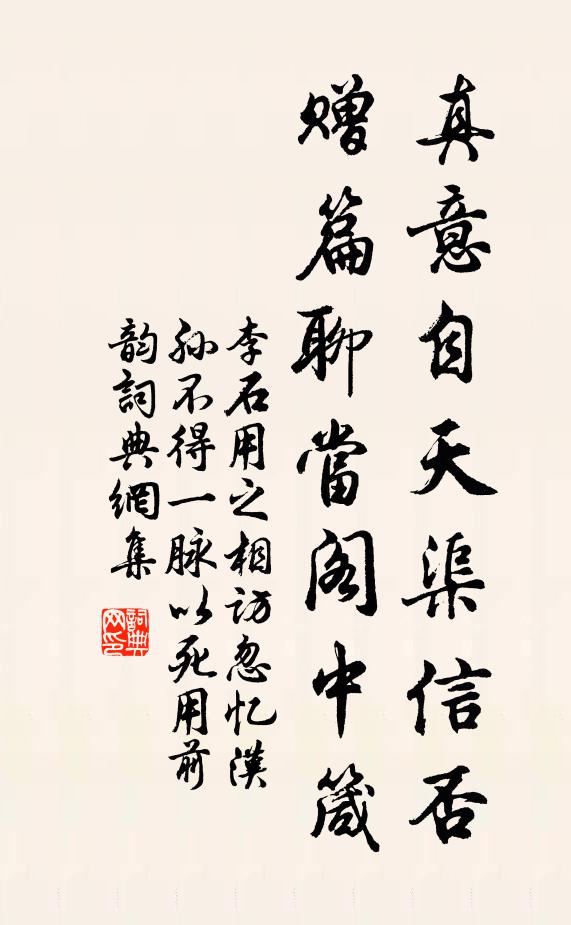 真意自天渠信否
贈篇聊當閣中箴
李石用之相訪忽忆漢
孫不得一脉以死用前
韵詞典網集
詞典
网印